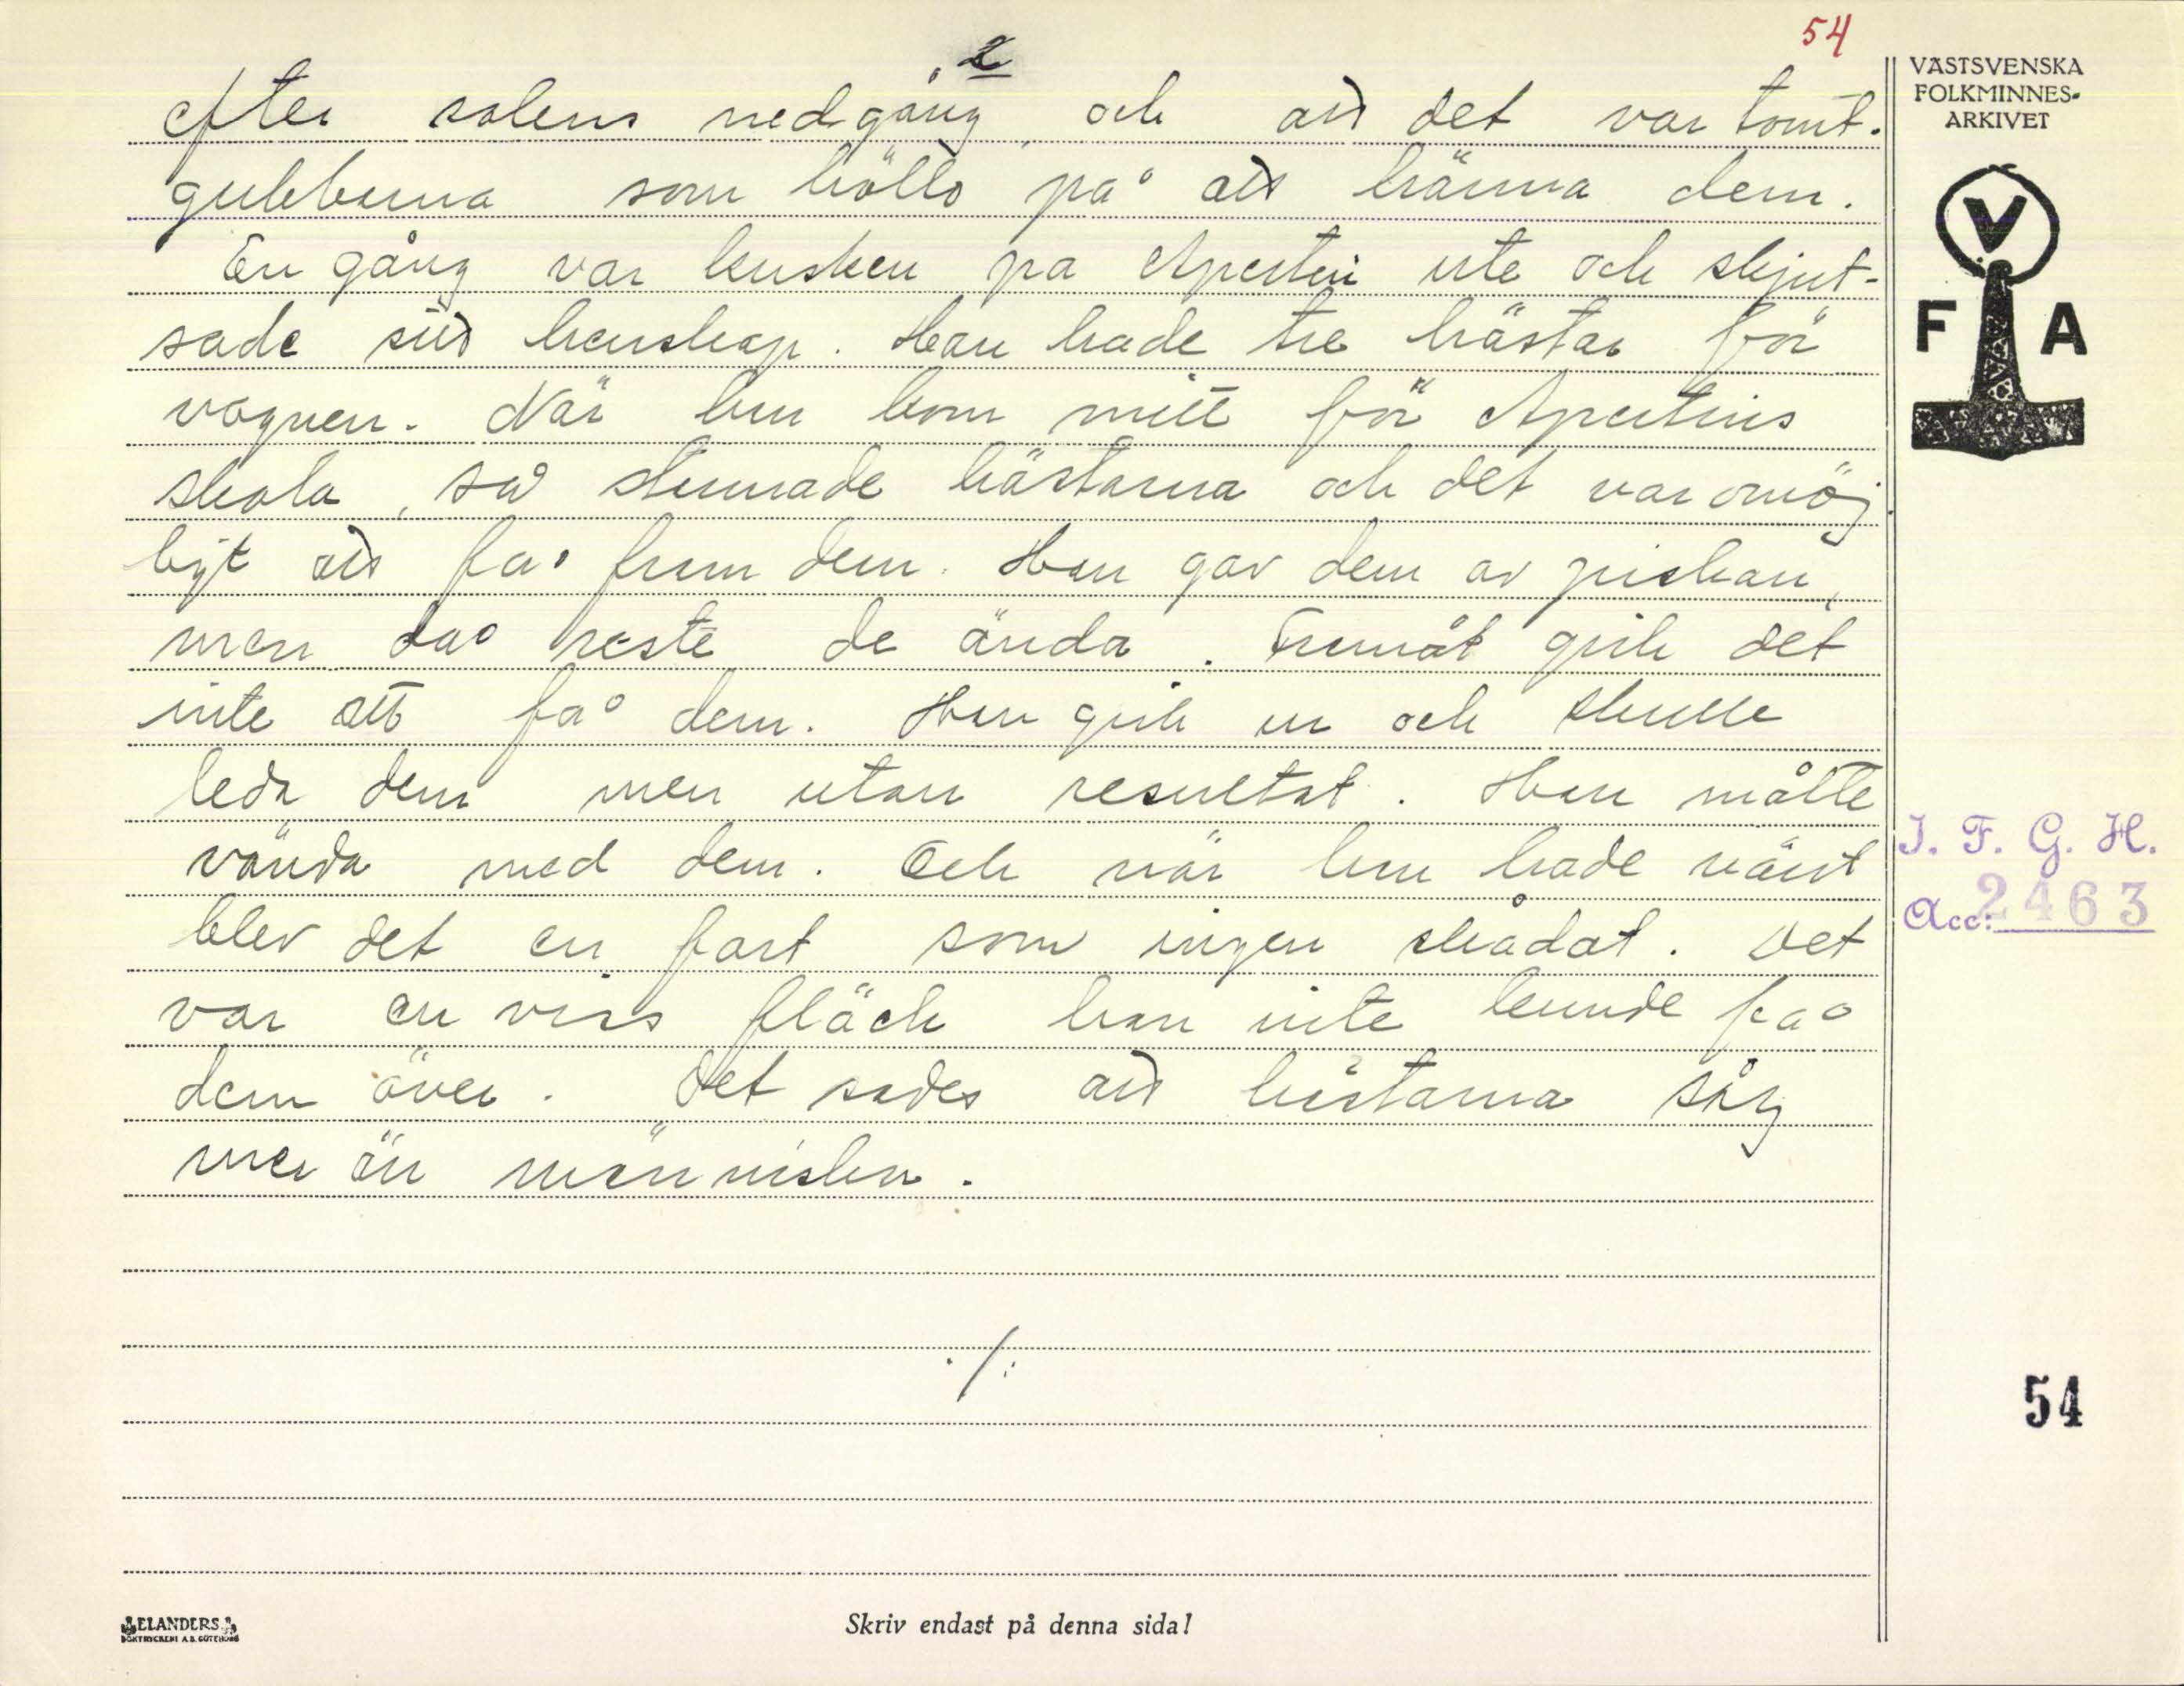 54
2
efter solens nedgång och att det var tomt-
gubbarna som höllo på att hämna dem.
En gång var kusken på Apertin ute och skjut-
sade sitt herrskap. Han hade tre hästar för
vagnen. När han kom mitt för Apertins
skola, så stannade hästarna och det var omöj
ligt att få fram dem. Han gav dem av piskan,
men då reste de ända. Framåt gick det
inte att få dem. Han gick ur och skulle
leda dem men utan resultat. Han måtte
vända med dem. Och när han hade vänt
blev det en fart som ingen skådat. Det
var en viss fläck han inte kunde få
dem över. Det sades att hästarna såg
mer än människan.
./:
VÄSTSVENSKA
FOLKMINNES-
ARKIVET
V
F A
I. F. G. H.
Acc: 2463
54
ELANDERS
BOKTRYCKERI A.B. GÖTEBORG
Skriv endast på denna sida!